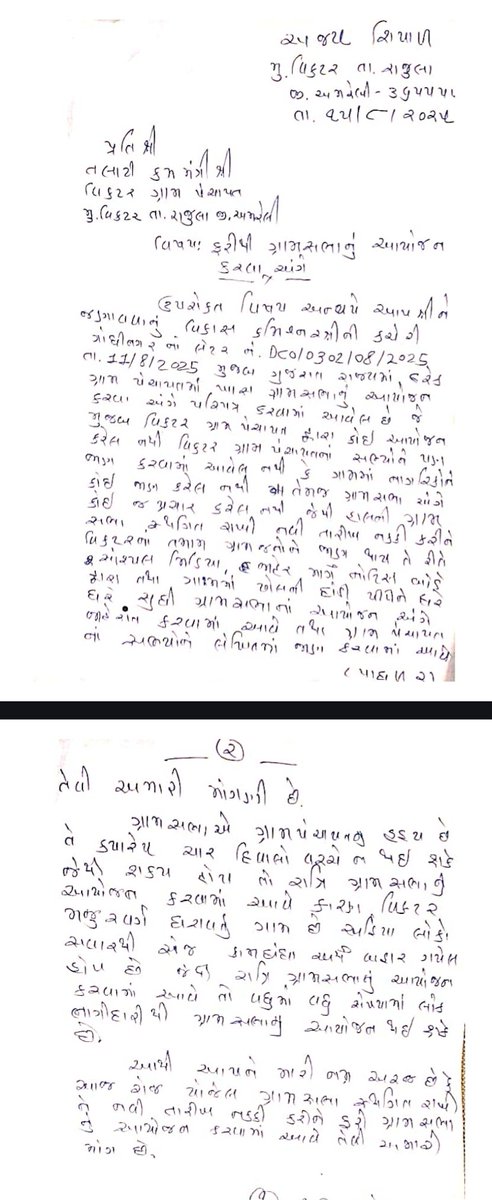 અજય શિયાળ
મુ. વિકટર તા. રાજુલા
જી. અમરેલી - ૩૬૫૫૫૫
તા. ૧૫/૮/૨૦૨૫
પ્રતિ શ્રી
તલાટી કમ મંત્રી શ્રી
વિકટર ગ્રામ પંચાયત
મુ. વિકટર તા. રાજુલા જી. અમરેલી
વિષય: ફરીથી ગ્રામસભાનું આયોજન
કરવા અંગે
ઉપરોક્ત વિષય અન્વયે આપ શ્રીને
જણાવવાનું વિકાસ કમિશ્નરશ્રીની કચેરી
ગાંધીનગર નાં લેટર નં. DCO/0302/08/2025
તા. 11/8/2025 મુજબ ગુજરાત રાજ્યમાં દરેક
ગ્રામ પંચાયતમાં ખાસ ગ્રામસભાનું આયોજન
કરવા અંગે પરિપત્ર કરવામાં આવેલ છે જે
મુજબ વિકટર ગ્રામ પંચાયત દ્વારા કોઈ આયોજન
કરેલ નથી વિકટર ગ્રામ પંચાયતનાં સભ્યોને પણ
જાણ કરવામાં આવેલ નથી કે ગામમાં નાગરિકોને
કોઈ જાણ કરેલ નથી તેમજ ગ્રામસભા અંગે
કોઈ જ પ્રચાર કરેલ નથી જેથી હાલની ગ્રામ
સભા સ્થગિત રાખી નવી તારીખ નક્કી કરીને
વિકટરના તમામ ગ્રામજનોને જાણ થાય તે રીતે
સોશ્યલ મિડિયા, જાહેર માર્ગે નોટિસ બોર્ડ
દ્વારા તથા ગામમાં ઢોલની દાંડી પીટીને ઘરે
ઘરે સુધી ગ્રામસભાનાં આયોજન અંગે
જાહેરાત કરવામાં આવે તથા ગ્રામ પંચાયત
નાં સભ્યોને લેખિતમાં જાણ કરવામાં આવે
(પાછળ ૨)
૨
તેવી અમારી માંગણી છે.
ગ્રામસભા એ ગ્રામપંચાયતનું હૃદય છે
તે ક્યારેય ચાર દિવાલો વચ્ચે ન થઈ શકે
જેથી શક્ય હોય તો રાત્રિ ગ્રામસભાનું
આયોજન કરવામાં આવે કારણ વિકટર
મજુર વર્ગ ધરાવતું ગામ છે અહિયા લોકો
સવારથી સાંજ કામધંધા અર્થે બહાર ગયેલ
હોય છે જેથી રાત્રિ ગ્રામસભાનું આયોજન
કરવામાં આવે તો વધુમાં વધુ સંખ્યામાં લોક
ભાગીદારીથી ગ્રામસભાનું આયોજન થઈ શકે
છે.
આથી આપને મારી નમ્ર અરજ છે કે
આજ રોજ યોજેલ ગ્રામસભા સ્થગિત રાખી
ને નવી તારીખ નક્કી કરીને ફરી ગ્રામસભા
નું આયોજન કરવામાં આવે તેવી અમારી
માંગ છે.